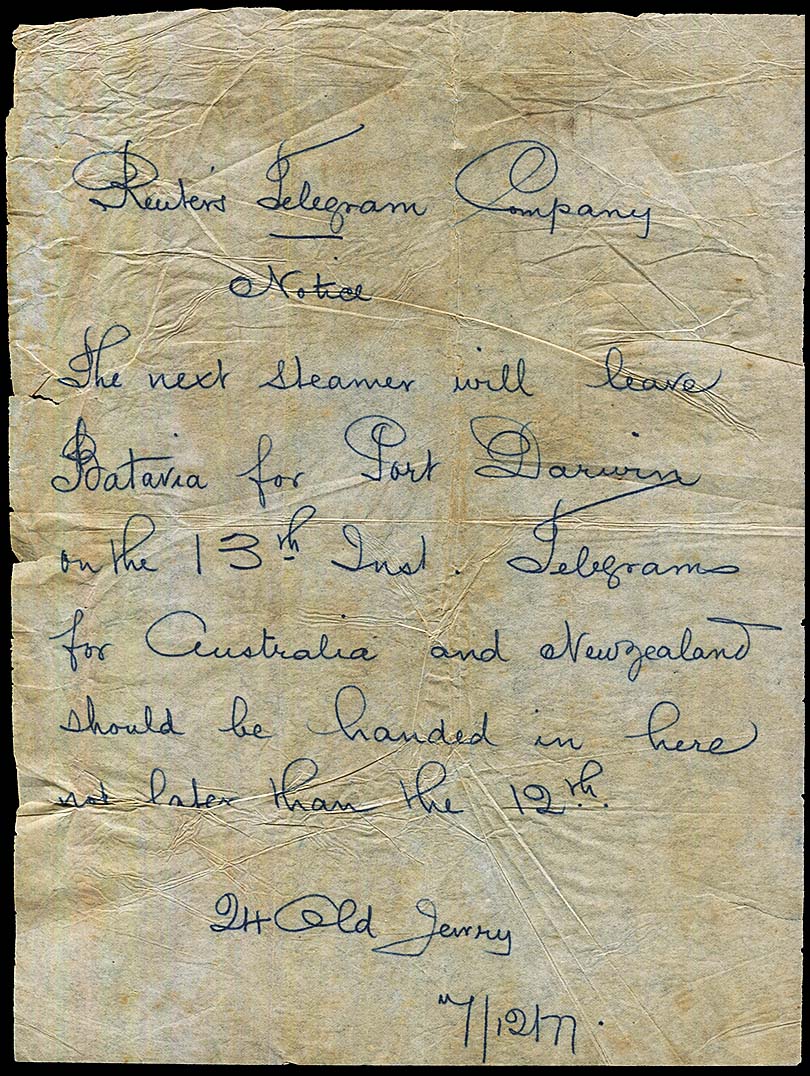 Reuter's Telegram Company
Notice
The next steamer will leave
Batavia for Port Darwin
on the 13th Inst. Telegrams
for Australia and Newzealand
should be handed in here
not later than the 12th.
24 Old Jewry
7/12/77.